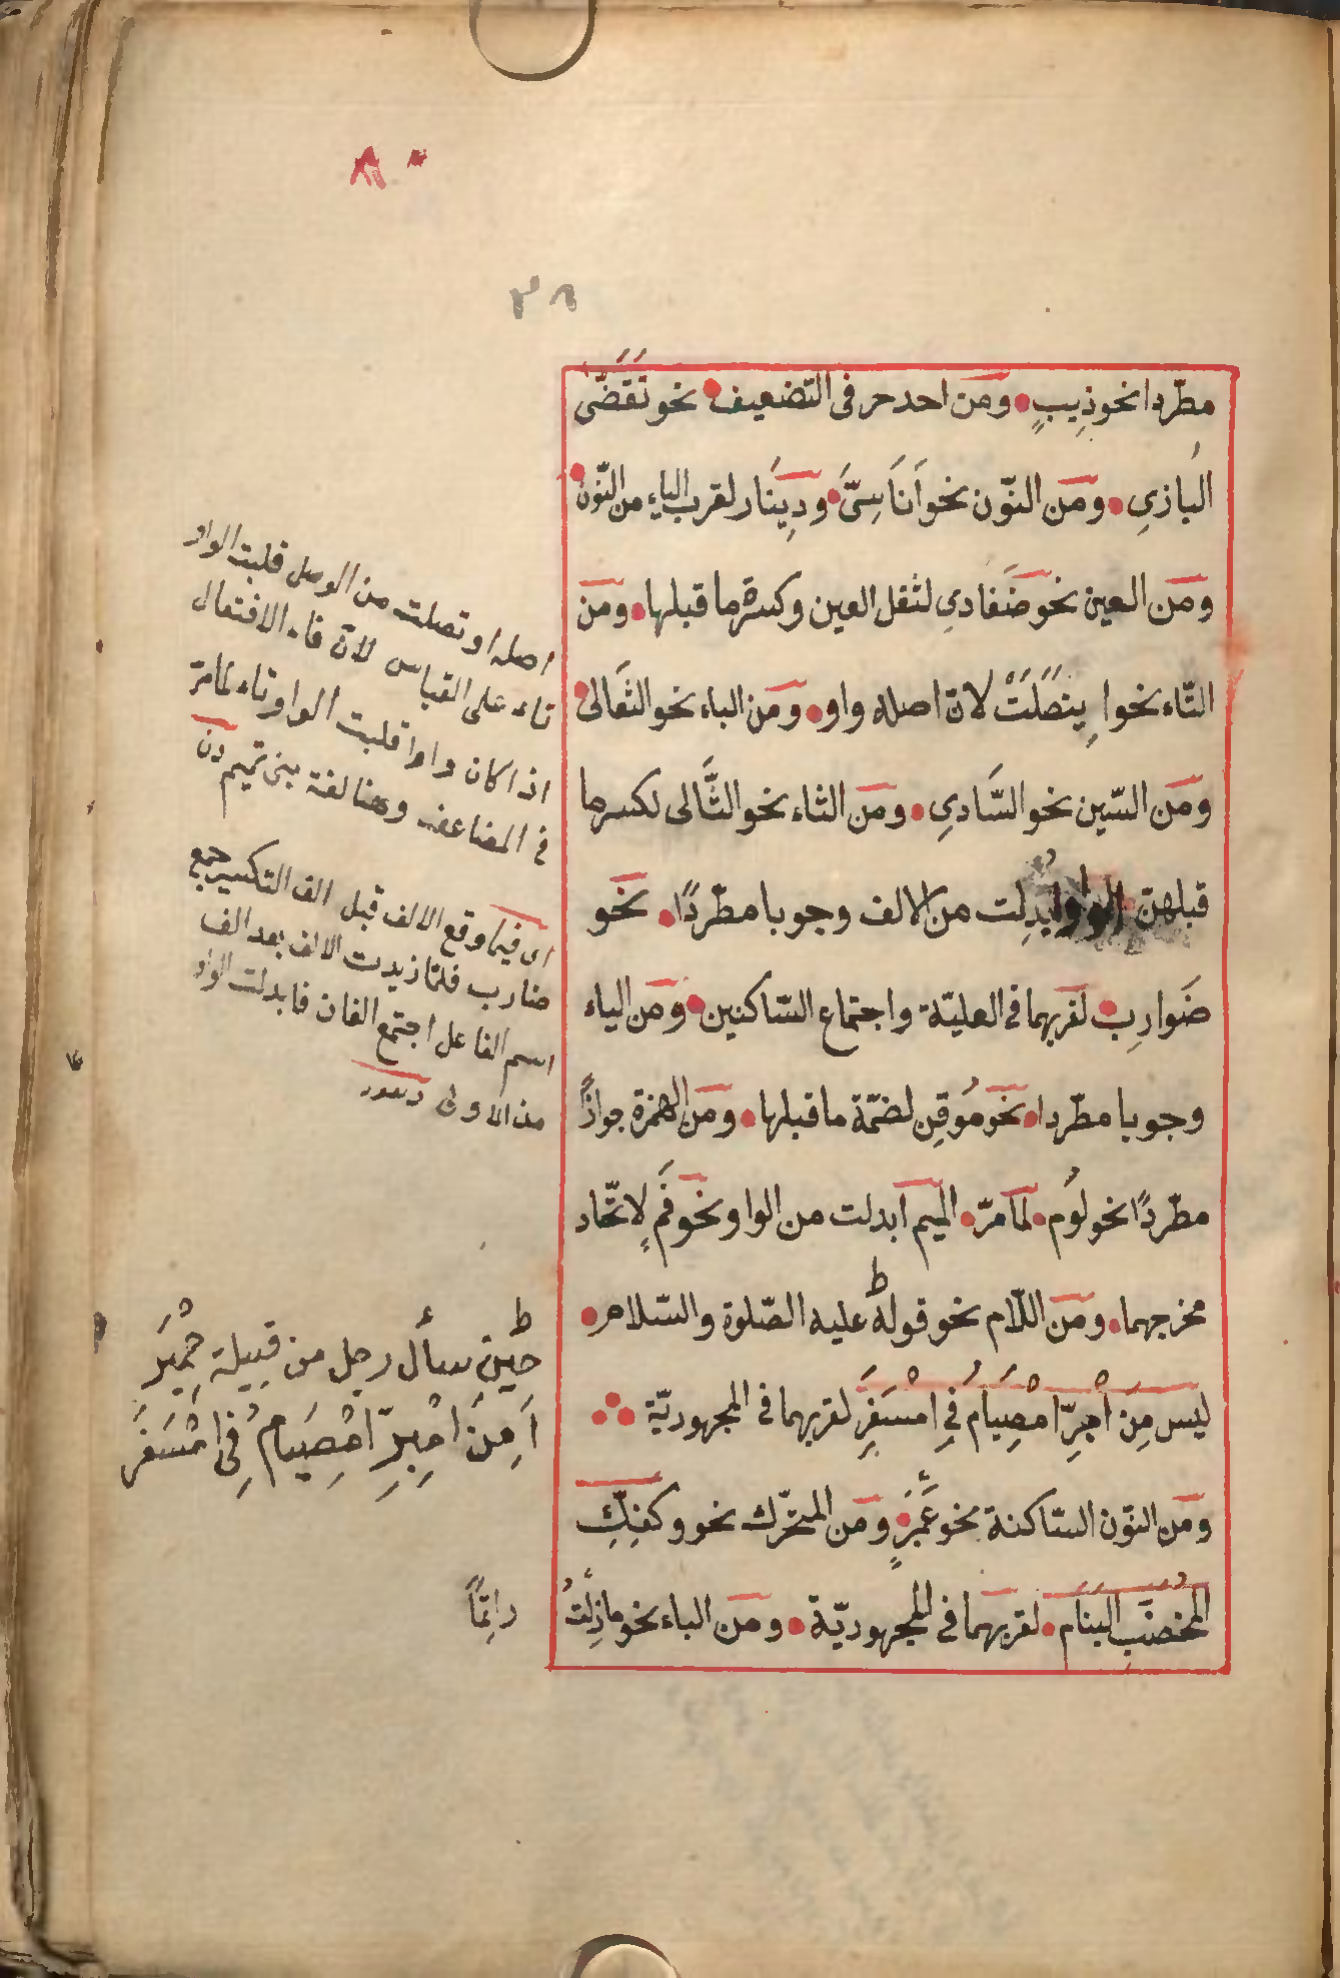 ٨٠
٣٨
مطّردا نحو ذِيبٍ ومن احد حرفى التضعيف نحو تَقَضَّى
البازىِ ومن النّون نحو اَنَاسِىَّ ودِينَار لقرب الياء من النّون
ومن العين نحو ضَفَادىِ لثقل العين وكسرة ما قبلها ومن
التّاء نحو اِيتَصَلَتْ لانّ اصله واو ومن الباء نحو الثعَالى
ومن السّين نحو السَّادىِ ومن الثاء نحو الثَّالى لكسر ما
قبلهنّ الواو اُبدِلت من الالف وجوبا مطّردًا نحو
ضَوارِب لقربهما فى العليّة واجتماع السّاكنين ومن الياء
وجوبا مطّردا نحو مُوقِن لضمّة ما قبلها ومن الهمزة جوازًا
مطّردًا نحو لُوم لما مرّ الميم ابدلت من الواو نحو فَمٍ لاتّحاد
مخرجهما ومن اللّام نحو قوله ط عليه الصّلوة والسّلام
ليس مِنَ اْمْبِرِّ امْصِيَامُ فِى امْسَفَرِ لقربهما فى المجهوريّة
ومن النّون السّاكنة نحو عَمْبَرٍ ومن المتحرّك نحو وكفِّكِ
المُخضَّبِ البَنَام لقربهما فى المجهوريّة ومن الباء نحو ما زِلْتُ
راتِمًا
اصله اوتصلت من الوصل قلبت الواو
تاء على القياس لانّ فاء الافتعال
اذا كان واوا قلبت الواو تاء لما مرّ
فى المضاعف وهنا لغة بنى تميم
اى فيما وقع الالف قبل الف التكسير جمع
ضارب فلمّا زيدت الالف بعد الف
اسم الفاعل اجتمع الفان فابدلت الواو
من الاولى
ط حين سأل رجل من قبيلة حِمْيَر
اَمِنَ امْبِرِّ امْصِيَامُ فِى امْسَفَرِ